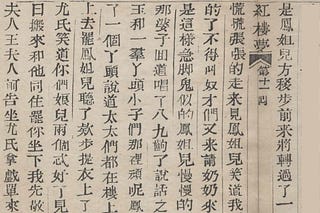 是鳳姐兒方移步前來將轉過了一
紅樓夢 第十一 四
慌慌張張的走來見鳳姐兒笑道我
的了不得叫奴才們又來請奶奶來
是這樣急脚鬼似的鳳姐兒慢慢的
那婆子回道唱了八九齣了說話之
玉和一羣丫頭小子們那裡頑呢鳳
了一個丫頭說道太太們都在樓上
上去罷鳳姐兒聽了欵步提衣上了
尤氏笑道你們娘兒兩個忒好了見
日搬來和他同住罷你坐下我先敬
夫人王夫人前告坐尤氏拿戲單來